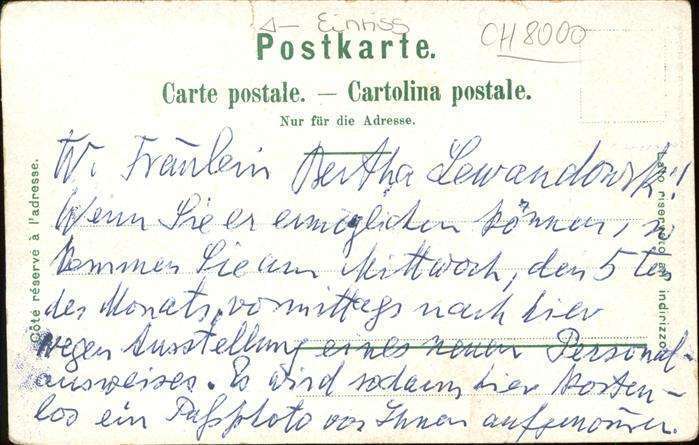 Eintiss
CH 8000
Postkarte.
Carte postale. — Cartolina postale.
Nur für die Adresse.
Côté réservé à l'adresse.
W. Fräulein Bertha Lewandowski!
Wenn Sie er ermöglichen können, so
kommen Sie am Mittwoch, den 5ten
des Monats, vormittags nach hier
wegen Ausstellung eines neuen Personal-
ausweises. Es wird sodann hier kosten-
los ein Paßphoto von Ihnen aufgenommen.
Lato riservato all' indirizzo